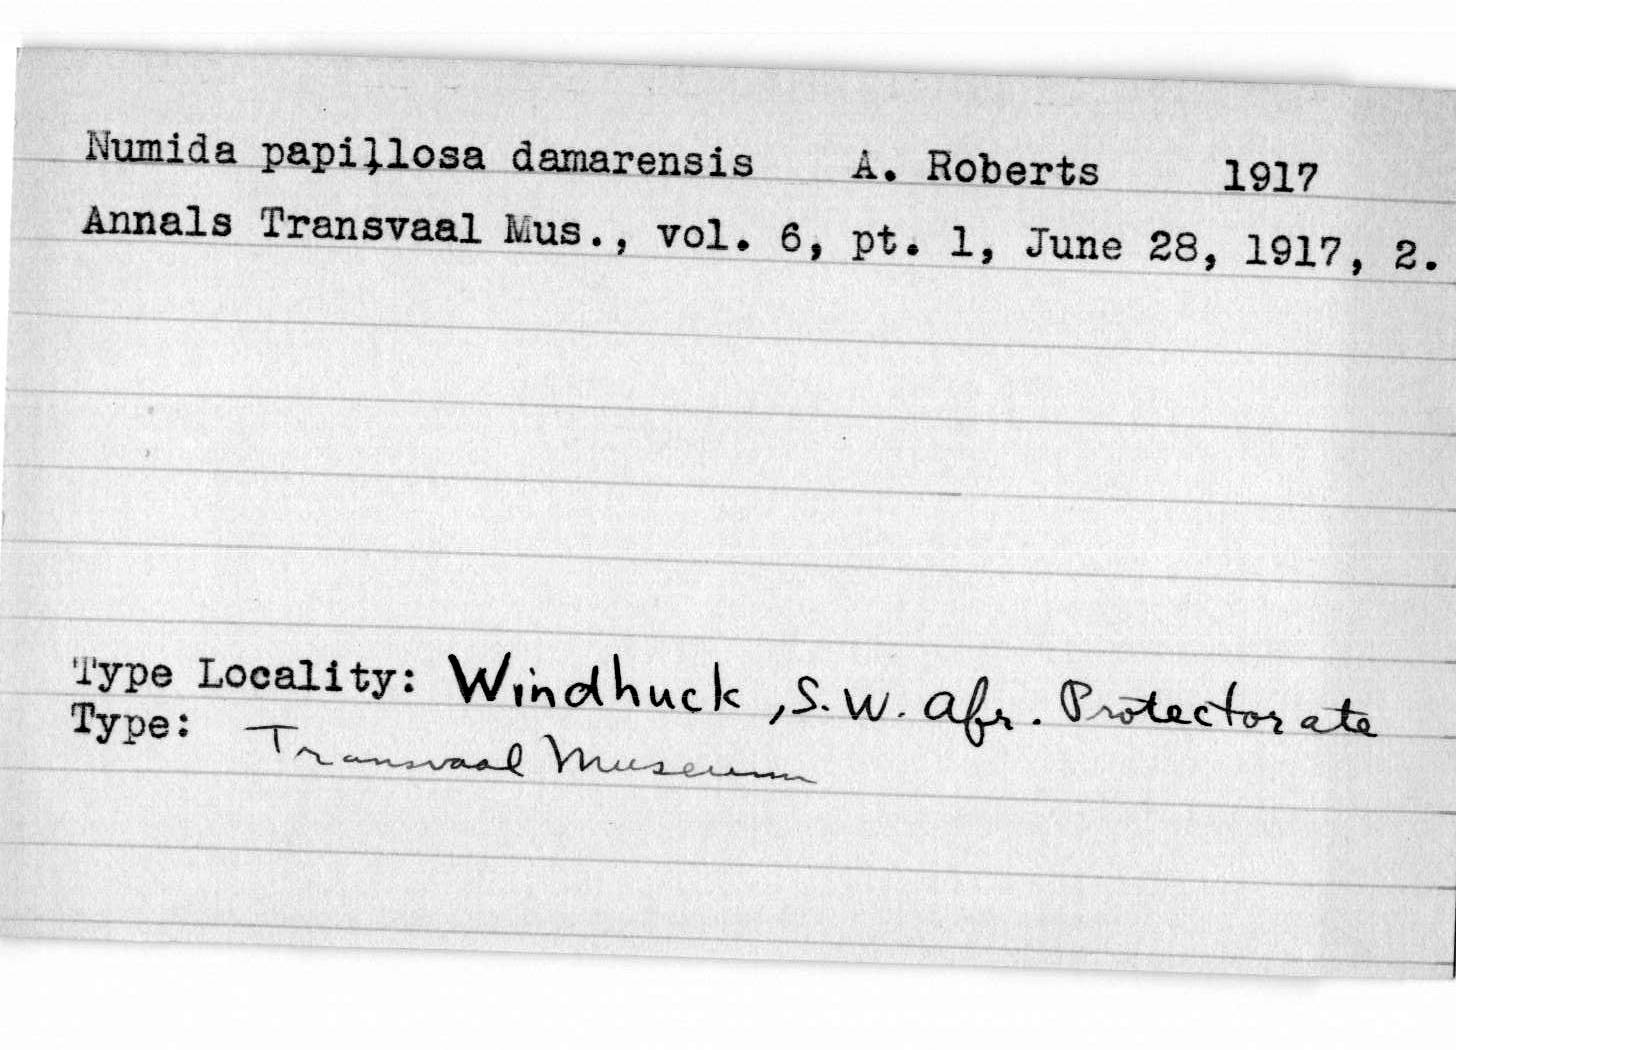 Numida papillosa damarensis A. Roberts 1917
Annals Transvaal Mus., vol. 6, pt. 1, June 28, 1917, 2.
Type Locality: Windhuck, S.W. Afr. Protectorate
Type: Transvaal Museum